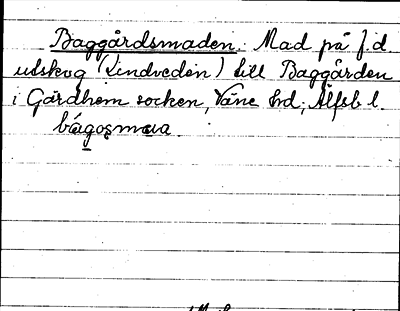 Baggårdsmaden. Mad på f.d.
utskog (Lindveden) till Baggården
i Gärdhem socken, Väne hd, Älfsb l.
bágosmaa.